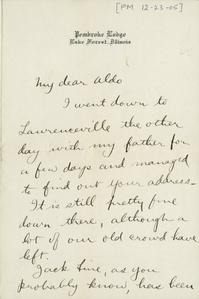 [PM 12-23-05]
Pembroke Lodge
Lake Forest, Illinois
My dear Aldo
I went down to
Lawrenceville the other
day with my father for
a few days and managed
to find out your address.
It is still pretty fine
down there, although a
lot of our old crowd have
left.
Jack, as you
probably know, has been